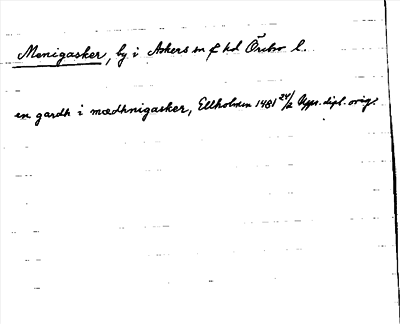 Menigasker, by i Askers sn o hd Örebro l.
en gardh i mædhnigasker, Ellholmen 1481 24/2 Upps. dipl. orig.